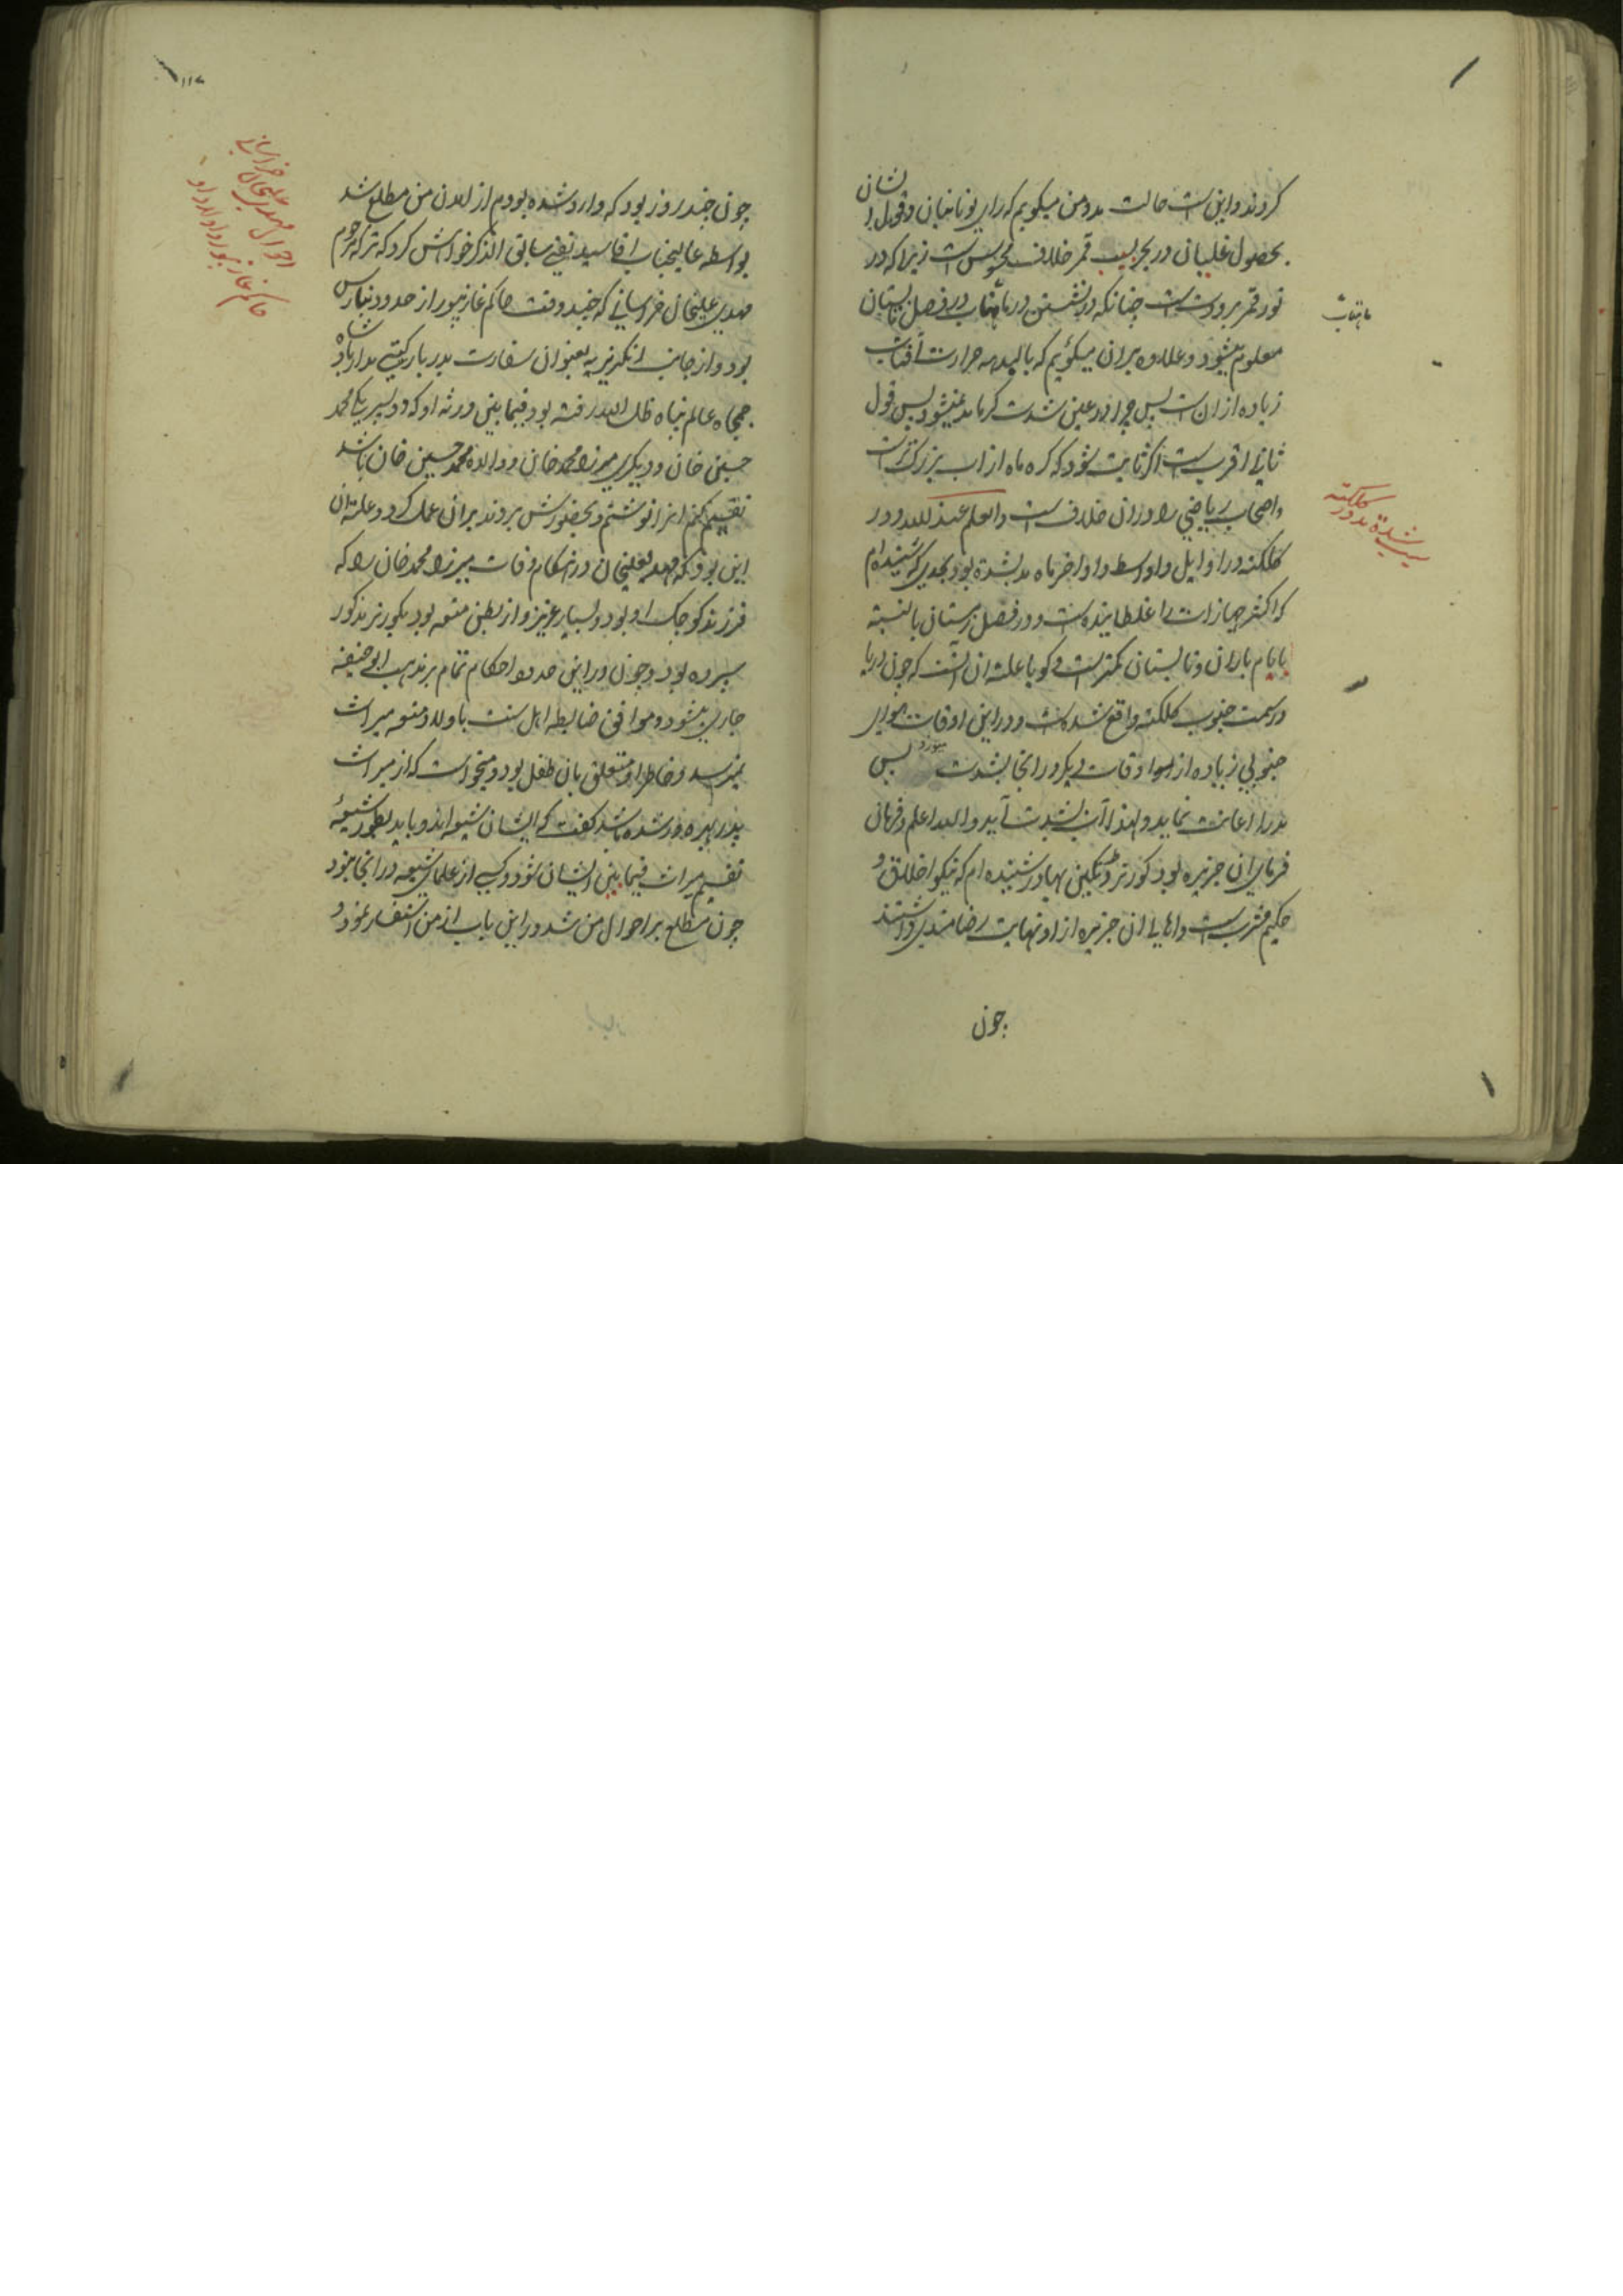 کردند و این است حالت مد و من میکویم که رای یونانیان و قول ایشان
بحصول غلیان در بحر بسبب قمر خلاف محسوس است زیرا که در
نور قمر برودت است چنانکه در نشستن در ماهتاب در فصل تابستان
ماهتاب
معلوم میشود و علاوه بران میکوئیم که بالبدیهه حرارت آفتاب
زیاده از ان است پس چرا در عین شدت کرما مد نمیشود پس قول
ثانی اقرب است اکر ثابت شود که کره ماه از اب بزرکتر است
و اصحاب ریاضی را در ان خلاف است والعلم عند الله و در
سبب شدة مد در کلکته
کلکته در اوایل و اواسط و اواخر ماه مد بشدة بود بحدی که شنیده ام
که اکثر جهازات را غلطانیده است و در فصل زمستان بالنسبة
بایام باران و تابستان کمتر است و کویا علة ان آنست که چون دریا
در سمت جنوب کلکته واقع شده است و در این اوقات هوای
جنوبی زیاده از سوا اوقات دیکر در انجا بشدت میوزد پس
مد را اعانت نماید و لهذا آب بشدت آید والله اعلم و فرمان
فرمای ان جزیره بود کورنر بهادر شنیده ام که نیکو اخلاق و
حکیم مشرب است و اهالی ان جزیره از او نهایت رضامندی داشتند
چون
۱۱۷
احوال مهدی علیخان خراسانی
حاکم غازیپور و اولاد او
چون چند روز بود که وارد شده بودم از امدن من مطلع شد
بواسطه عالیجناب اقا سید تقی سابق الذکر خواهش کرد که ترکه مرحوم
مهدی علیخان خراسانی که چند وقت حاکم غازیپور از حدود بنارس
بود و از جانب انکریزیه بعنوان سفارت بدربار کیتی مدار پادشاه
جمجاه عالم پناه ظل الله رفته بود فیمابین ورثه او که دو پسر یکی محمد
حسین خان و دیکری میرزا محمد خان و والده محمد حسین خان باشد
تقسیم کنم انرا نوشتم و بحضورش بردند بران عمل کرد و علت ان
این بود که مهدیعلیخان در هنکام وفات میرزا محمد خان را که
فرزند کوچک او بود و بسیار عزیز و از بطن متعه بود بکورنر مذکور
سپرده بود و چون در این حدود احکام تمام بر مذهب ابی حنیفه
جاری میشود و موافق ضابطه اهل سنت باولاد متعه میراث
نمیرسد و خاطر او متعلق بان طفل بود و میخواست که از میراث
پدر بهره ور شده باشد کفت که ایشان شیعه اند و باید بطور شیعه
تقسیم میراث فیمابین ایشان شود و کسی از علمای شیعه در انجا نبود
چون مطلع بر احوال من شد در این باب از من استفسار نمود و